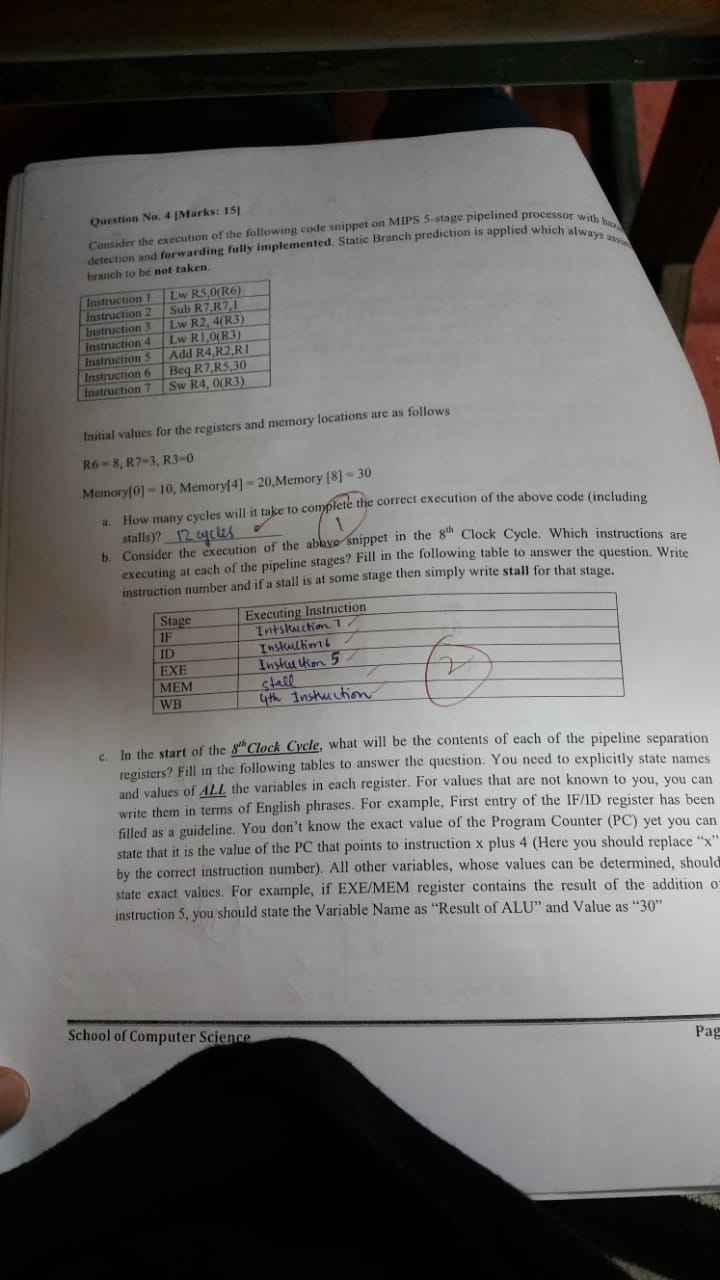 Question No. 4 [Marks: 15]
Consider the execution of the following code snippet on MIPS 5-stage pipelined processor with
detection and forwarding fully implemented. Static Branch prediction is applied which always
branch to be not taken.
Instruction 1 Lw R5,0(R6)
Instruction 2 Sub R7,R7,1
Instruction 3 Lw R2, 4(R3)
Instruction 4 Lw R1,0(R3)
Instruction 5 Add R4,R2,R1
Instruction 6 Beq R7,R5,30
Instruction 7 Sw R4, 0(R3)
Initial values for the registers and memory locations are as follows
R6 = 8, R7=3, R3=0
Memory[0] = 10, Memory[4] = 20,Memory [8] = 30
a. How many cycles will it take to complete the correct execution of the above code (including
stalls)? 12 cycles
1
b. Consider the execution of the above snippet in the 8th Clock Cycle. Which instructions are
executing at each of the pipeline stages? Fill in the following table to answer the question. Write
instruction number and if a stall is at some stage then simply write stall for that stage.
Stage Executing Instruction
IF Intskuction 7
ID Inskuction 6
EXE Instuction 5
MEM stall
WB 4th Instruction
2
c. In the start of the 8th Clock Cycle, what will be the contents of each of the pipeline separation
registers? Fill in the following tables to answer the question. You need to explicitly state names
and values of ALL the variables in each register. For values that are not known to you, you can
write them in terms of English phrases. For example, First entry of the IF/ID register has been
filled as a guideline. You don't know the exact value of the Program Counter (PC) yet you can
state that it is the value of the PC that points to instruction x plus 4 (Here you should replace "x"
by the correct instruction number). All other variables, whose values can be determined, should
state exact values. For example, if EXE/MEM register contains the result of the addition of
instruction 5, you should state the Variable Name as "Result of ALU" and Value as "30"
School of Computer Science
Pag